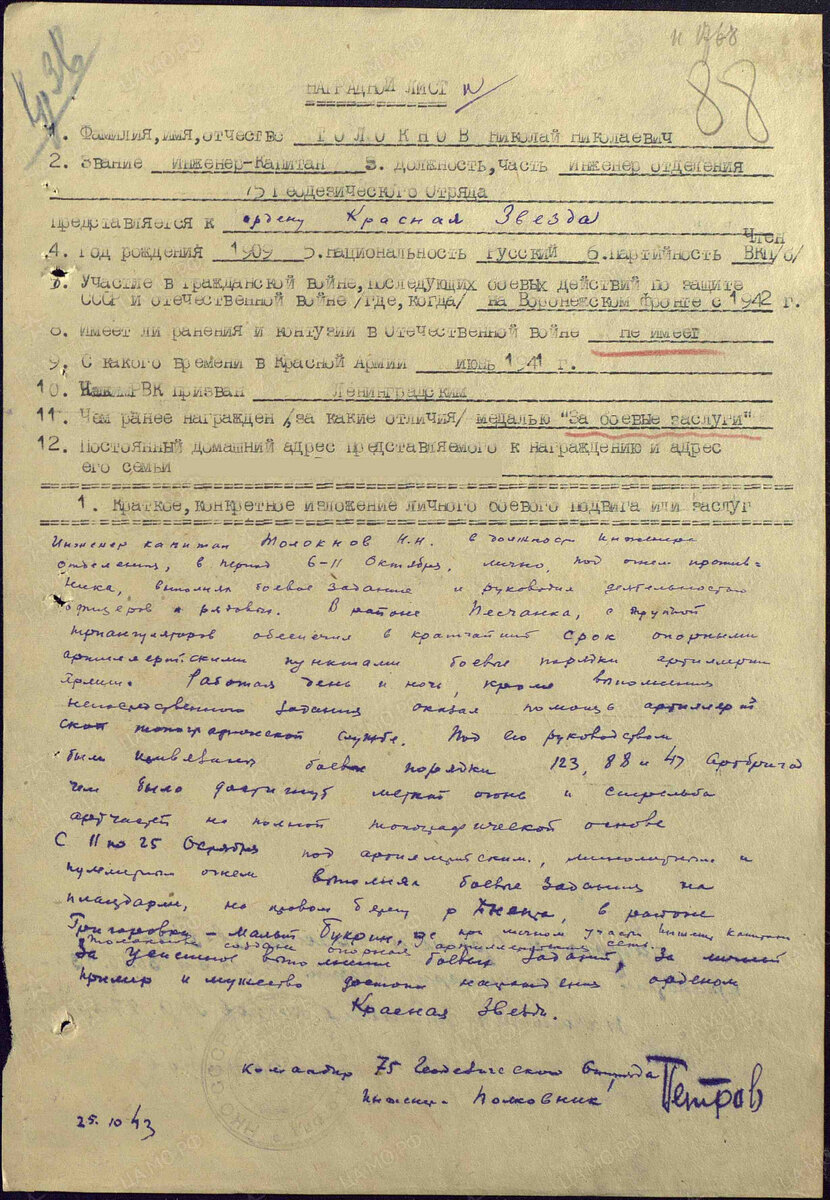 436
н 1768
88
НАГРАДНОЙ ЛИСТ
1. Фамилия,имя,отчество ТОЛОКНОВ Николай Николаевич
2. Звание Инженер-Капитан 3. должность,часть Инженер отделения
75 Геодезического Отряда
Представляется к ордену Красная Звезда
Член
4. Год рождения 1909 5.национальность Русский 6.партийность ВКП/б/
7. Участие в гражданской войне,последующих боевых действий по защите
СССР и отечественной войне /где,когда/ на Воронежском фронте с 1942 г.
8. Имеет ли ранения и контузии в Отечественной войне не имеет
9. С какого времени в Красной Армии июнь 1941 г.
10. РВК призван Ленинградским
11. Чем ранее награжден /за какие отличия/ медалью "За боевые заслуги"
12. Постоянный домашний адрес представляемого к награждению и адрес
его семьи
1. Краткое,конкретное изложение личного боевого подвига или заслуг
Инженер капитан Толокнов Н.Н. в должности инженера
отделения, в период 6-11 Октября, лично, под огнем против-
ника, выполнял боевое задание и руководил деятельностью
офицеров и рядовых. В районе Песчанка, с группой
триангуляторов обеспечил в кратчайший срок опорными
артиллерийскими пунктами боевые порядки артиллерии
Армии. Работая день и ночь, кроме выполнения
непосредственного задания оказал помощь артиллерий
ской топографической службе. Под его руководством
были привязаны боевые порядки 123, 88 и 47 Артбригад
чем было достигнут меткий огонь и стрельба
артчастей на полной топографической основе
С 11 по 25 Октября под артиллерийским, минометным и
пулеметным огнем выполнял боевые задания на
плацдарме, на правом берегу р Днепра, в районе
Григоровка - Малый Букрин, где при личном участии инженер капитана
Толокнова создана опорная артиллерийская сеть.
За успешное выполнение боевых заданий, за личный
пример и мужество достоин награждения орденом
Красная Звезда.
Командир 75 Геодезического Отряда
Инженер - Полковник Петров
25.10.43
ЦАМО.РФ